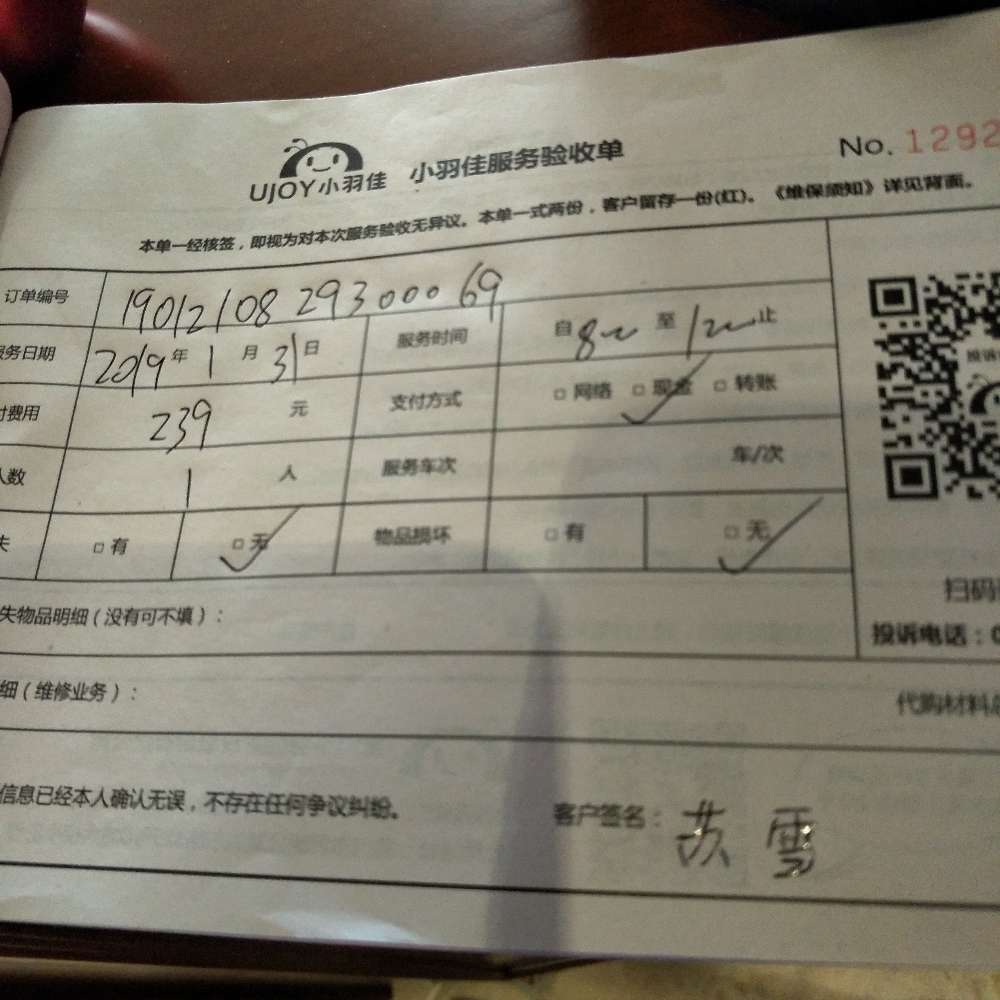 UJOY小羽佳 小羽佳服务验收单 No. 1292
本单一经核签，即视为对本次服务验收无异议。本单一式两份，客户留存一份(红)。《维保须知》详见背面。
订单编号 19012108293000069
务日期 2019年1月31日 服务时间 自8 至12止
付费用 239元 支付方式 □网络 □现金 □转账
人数 1人 服务车次 车/次
失 □有 □无 物品损坏 □有 □无
投诉
扫码
失物品明细（没有可不填）： 投诉电话：0
细（维修业务）： 代购材料总
信息已经本人确认无误，不存在任何争议纠纷。 客户签名：苏雪